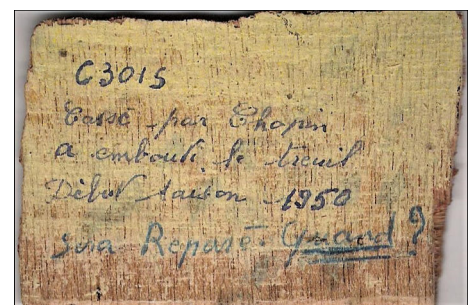 C3015
Cassé par Chopin
a embouti le treuil
Début saison 1950
sera Reparé. Quand ?